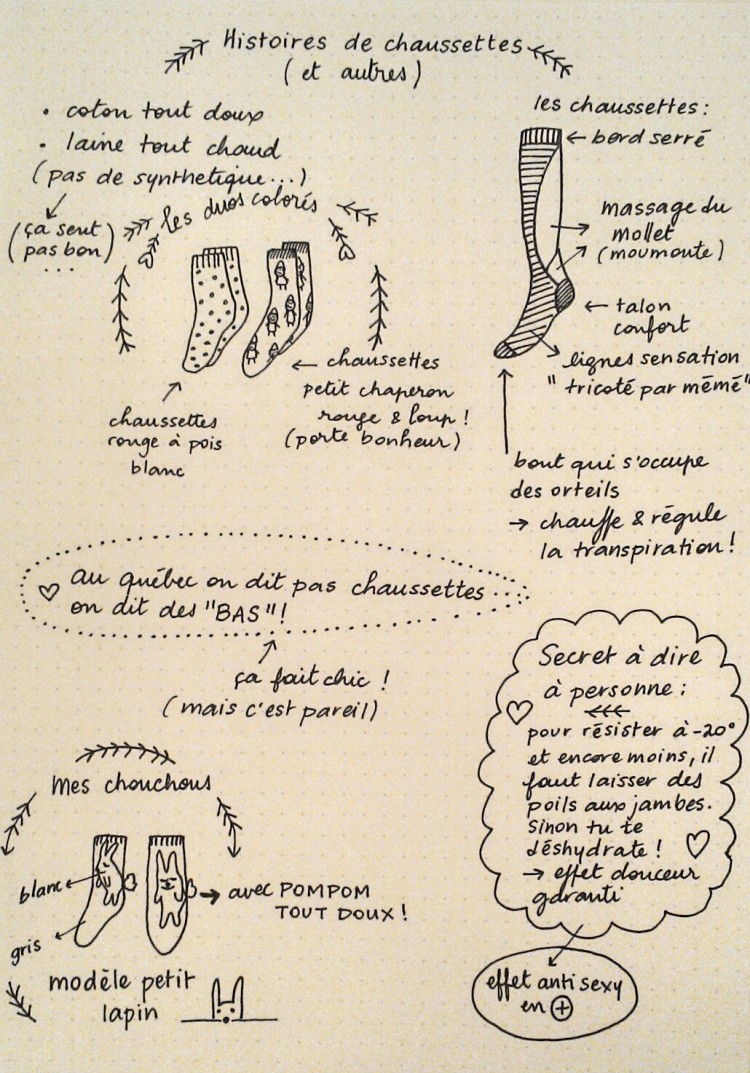 Histoires de chaussettes
(et autres)
• coton tout doux
• laine tout chaud
(pas de synthetique...)
(ça sent
pas bon)
...
les duos colorés
chaussettes
rouge à pois
blanc
chaussettes
petit chaperon
rouge & loup !
(porte bonheur)
les chaussettes :
bord serré
massage du
mollet
(moumoute)
talon
confort
lignes sensation
"tricoté par mémé"
bout qui s'occupe
des orteils
→ chauffe & régule
la transpiration !
au québec on dit pas chaussettes
on dit des "BAS" !
ça fait chic !
(mais c'est pareil)
Secret à dire
à personne :
pour résister à -20°
et encore moins, il
faut laisser des
poils aux jambes.
Sinon tu te
déshydrate !
→ effet douceur
garanti
effet anti sexy
en +
Mes chouchous
blanc
gris
avec POMPOM
TOUT DOUX !
modèle petit
lapin